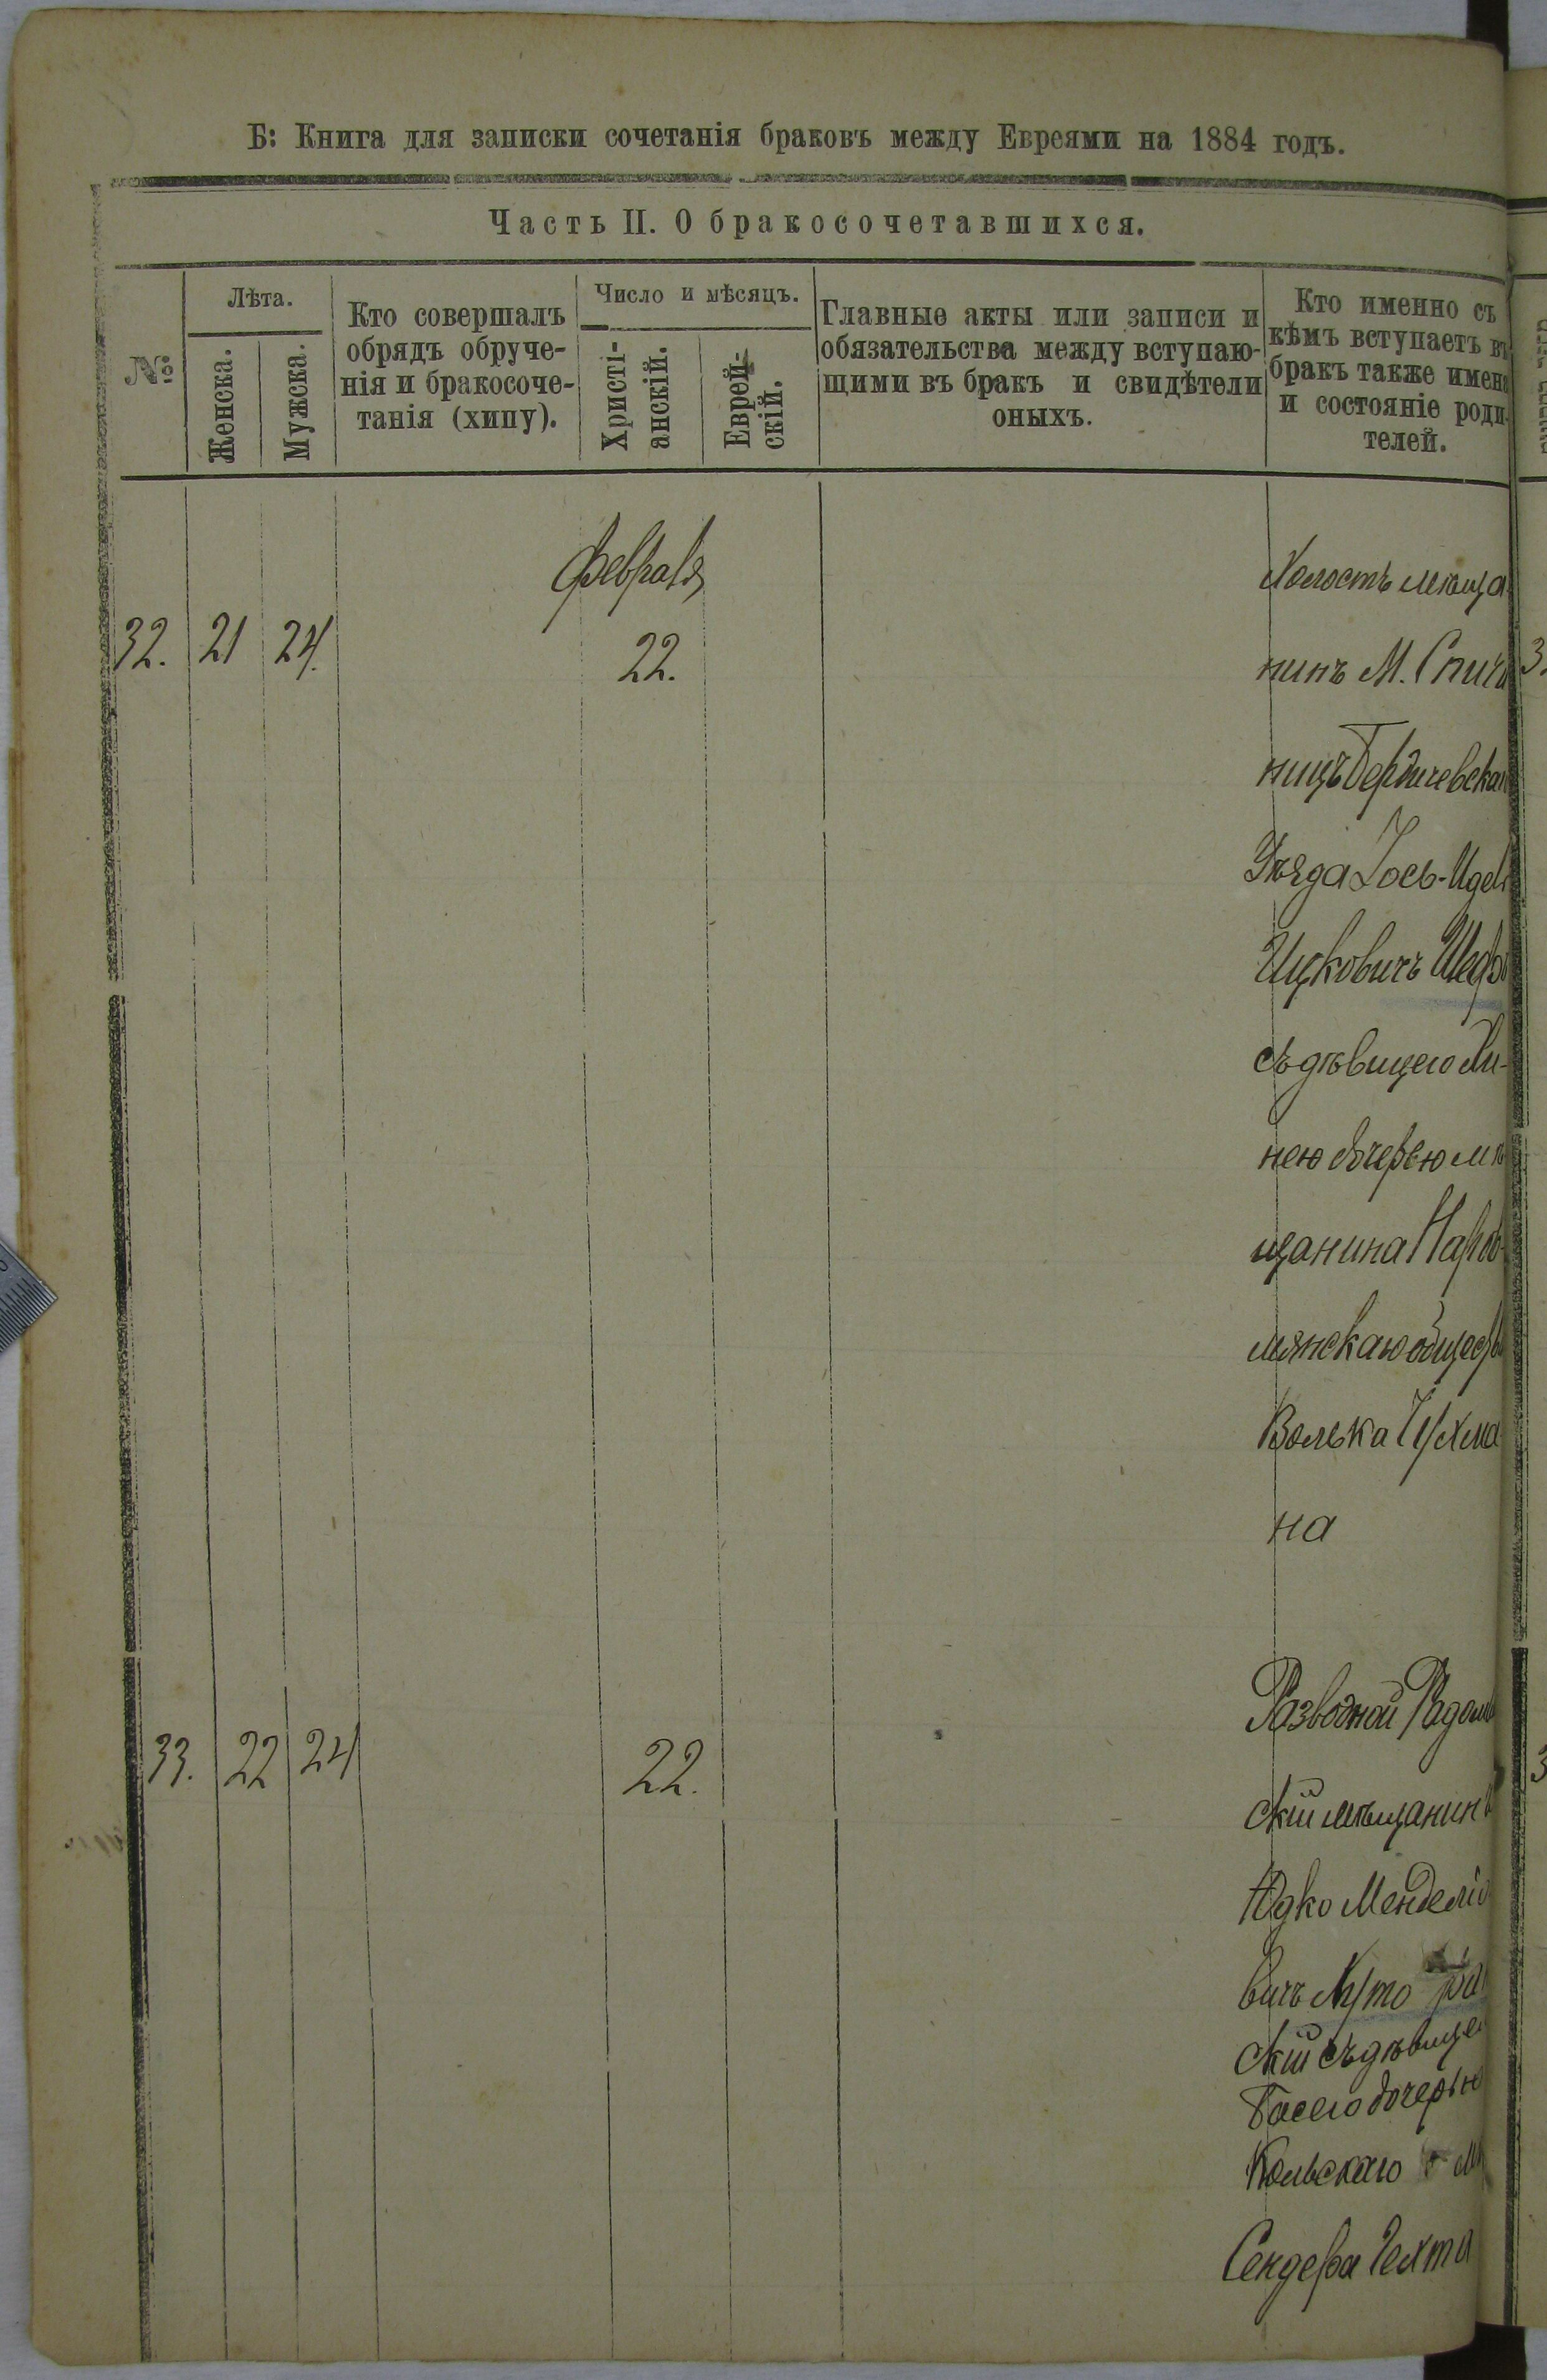 Б: Книга для записки сочетанія браковъ между Евреями на 1884 годъ.
Часть II. О бракосочетавшихся.
№
Лѣта.
Женска.
Мужеска.
Кто совершалъ
обрядъ обруче-
нія и бракосоче-
танія (хипу).
Число и мѣсяцъ.
Христі-
анскій.
Еврей-
скій.
Главные акты или записи и
обязательства между вступаю-
щими въ бракъ и свидѣтели
оныхъ.
Кто именно съ
кѣмъ вступаетъ въ
бракъ также имена
и состояніе роди-
телей.
Февраля
32. 21 24. 22.
Холостъ мѣща
нинъ М. Спичи
нецъ Бердичевскаг
Уѣзда Іось-Идел
Ицковичъ
съ дѣвицею Хи-
нею дочерью мѣ
щанина
обществ
Волька Цухма
на
33. 22 24 22.
Разводной Радом
скій мѣщанинъ
Юдко Менделіо
вичъ Хуто
скій съ дѣвицею
Басею дочерью
Кольскаго
Сендера Гехта